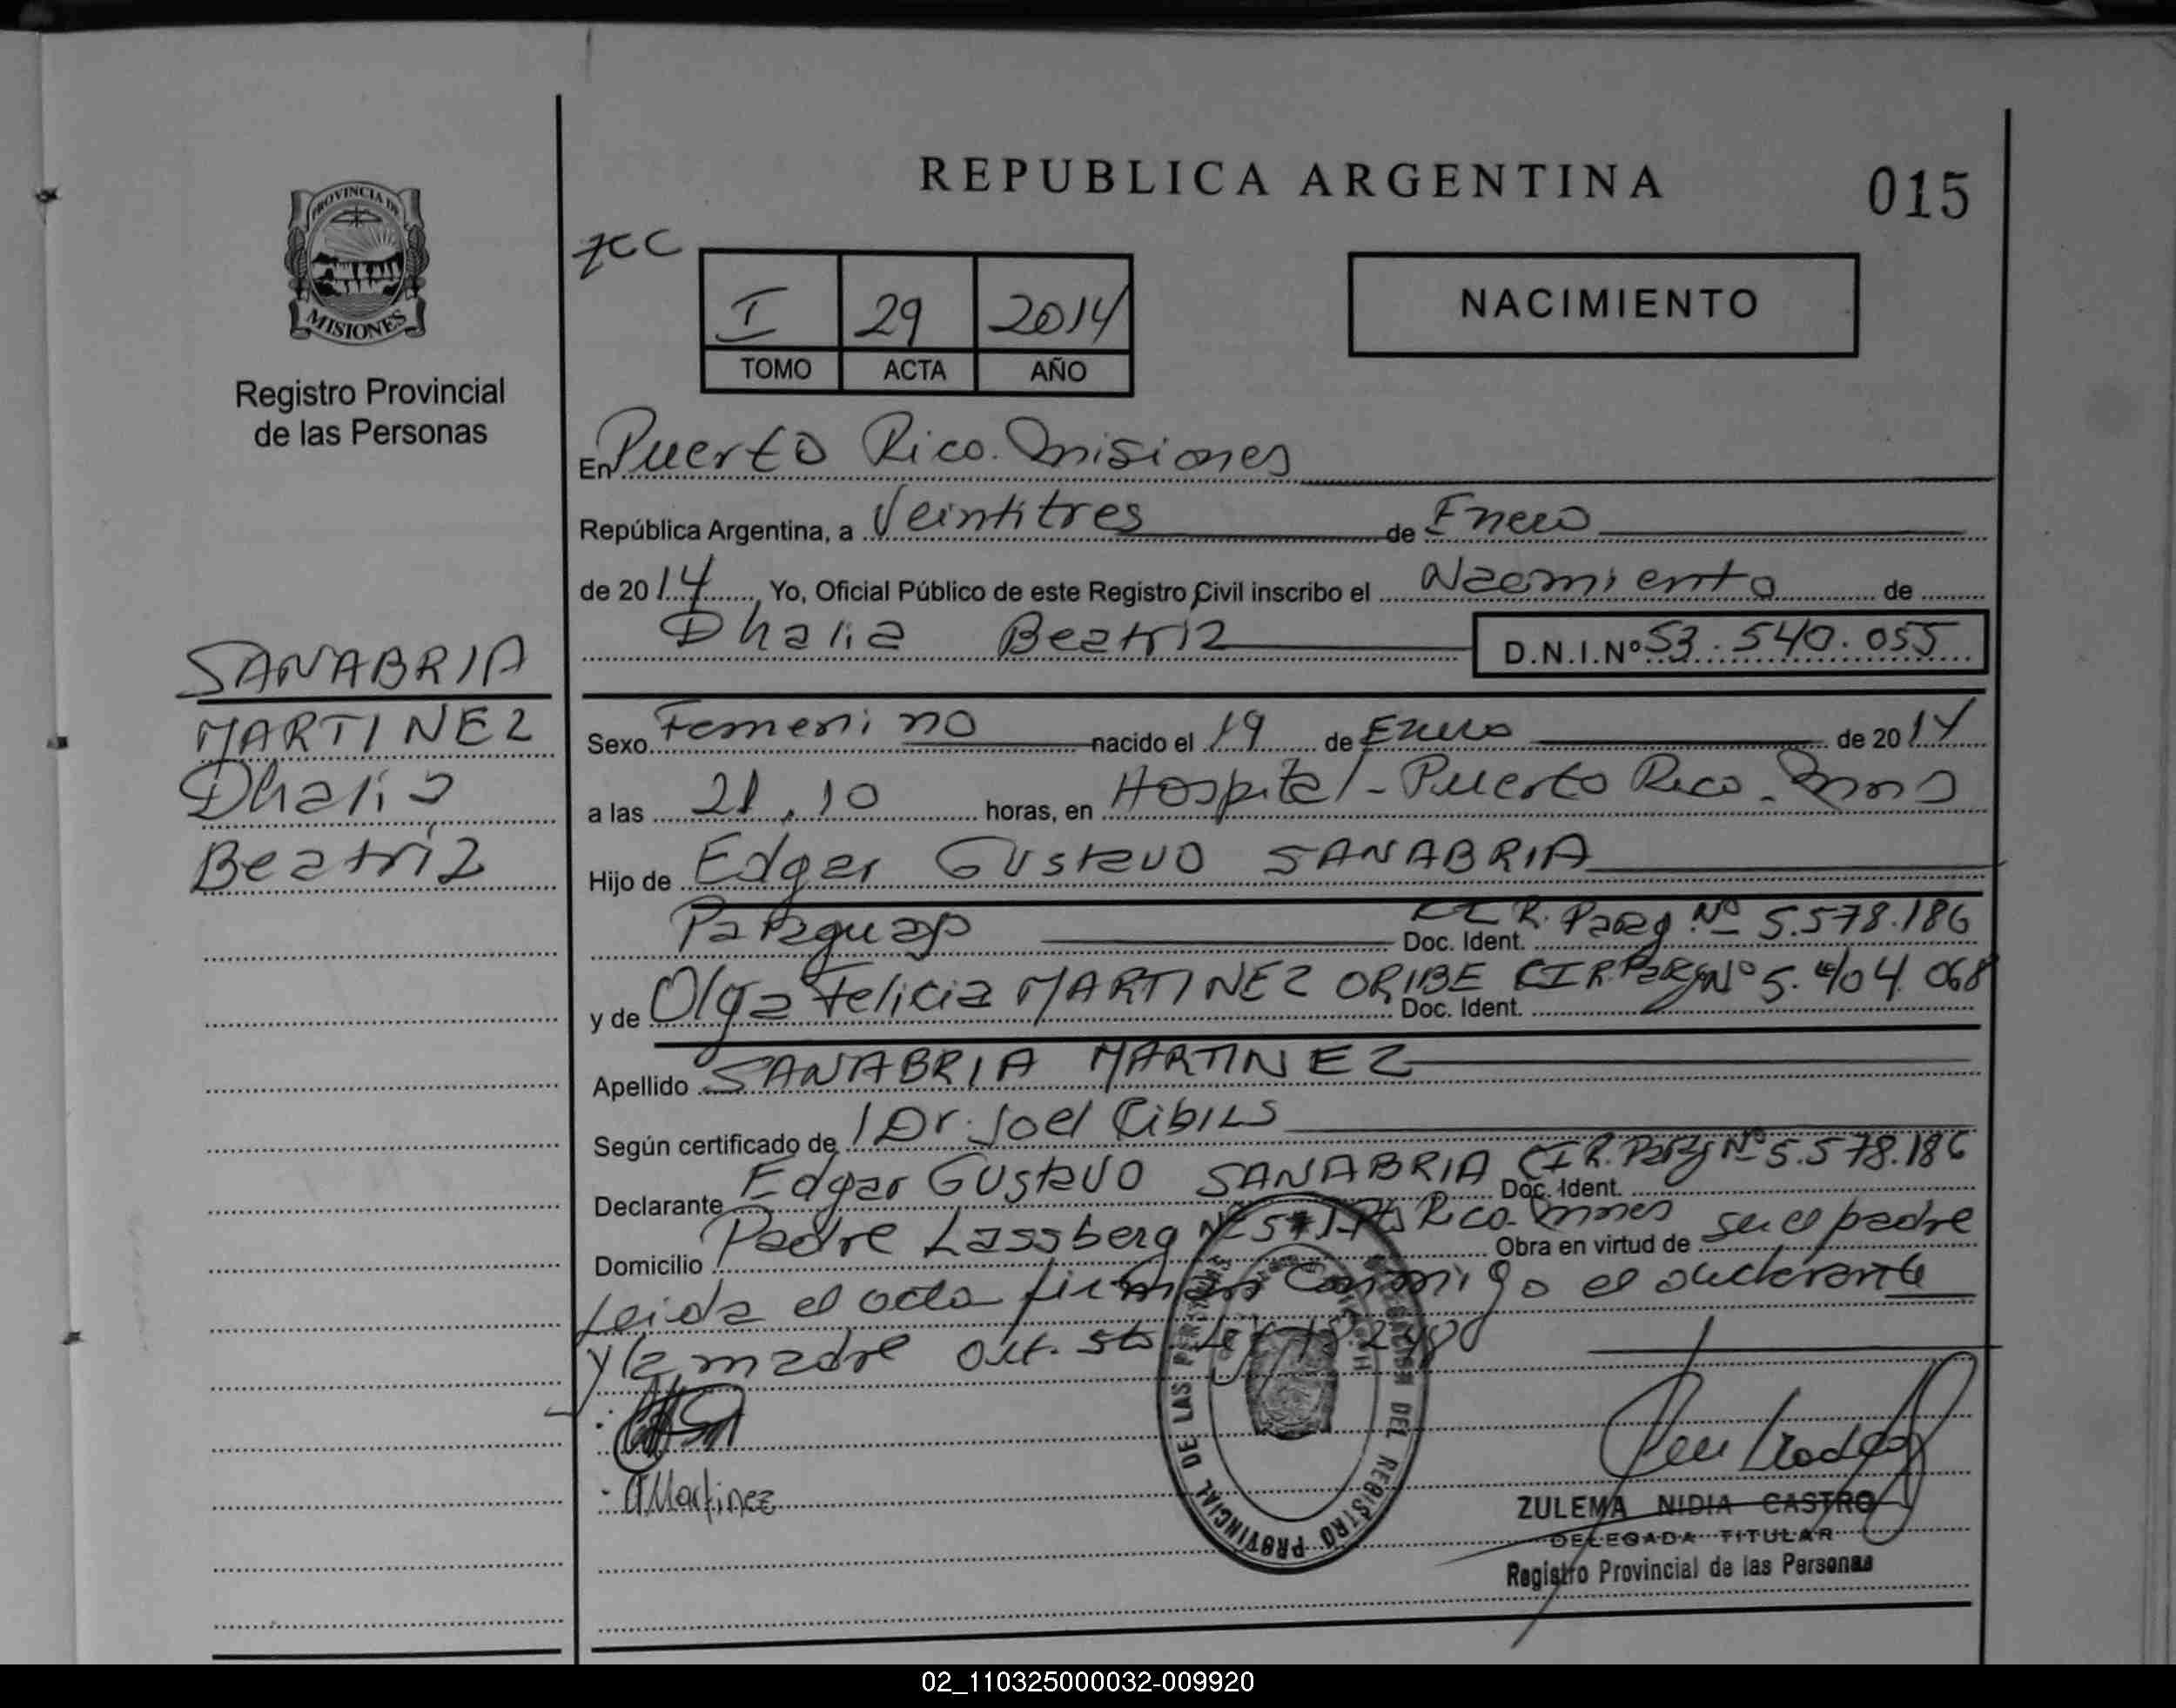 REPUBLICA ARGENTINA
015
PROVINCIA DE
MISIONES
Registro Provincial
de las Personas
I 29 2014
TOMO ACTA AÑO
NACIMIENTO
En Puerto Rico. Misiones
República Argentina, a Veintitres de Enero
de 2014, Yo, Oficial Público de este Registro Civil inscribo el Nacimiento de
Dhalia Beatriz D.N.I.Nº 53.540.055
SANABRIA
MARTINEZ
Dhalia
Beatriz
Sexo Femenino nacido el 19 de Enero de 2014
a las 21,10 horas, en Hospital - Puerto Rico - Mnes
Hijo de Edgar Gustavo SANABRIA
Paraguay Doc. Ident. C.I.R. Parag. Nº 5.578.186
y de Olga Felicia MARTINEZ ORIBE Doc. Ident. CIR. Parg Nº 5.404.068
Apellido SANABRIA MARTINEZ
Según certificado de Dr. Joel Cibils
Declarante Edgar Gustavo SANABRIA Doc. Ident. CIR. Parg Nº 5.578.186
Domicilio Padre Lassberg Nº Rico. Mnes Obra en virtud de ser el padre
Leida el acta firman conmigo el declarante
y la madre
Martinez
DELEGACION DEL REGISTRO PROVINCIAL DE LAS PERSONAS
ZULEMA NIDIA CASTRO
DELEGADA TITULAR
Registro Provincial de las Personas
02_110325000032-009920